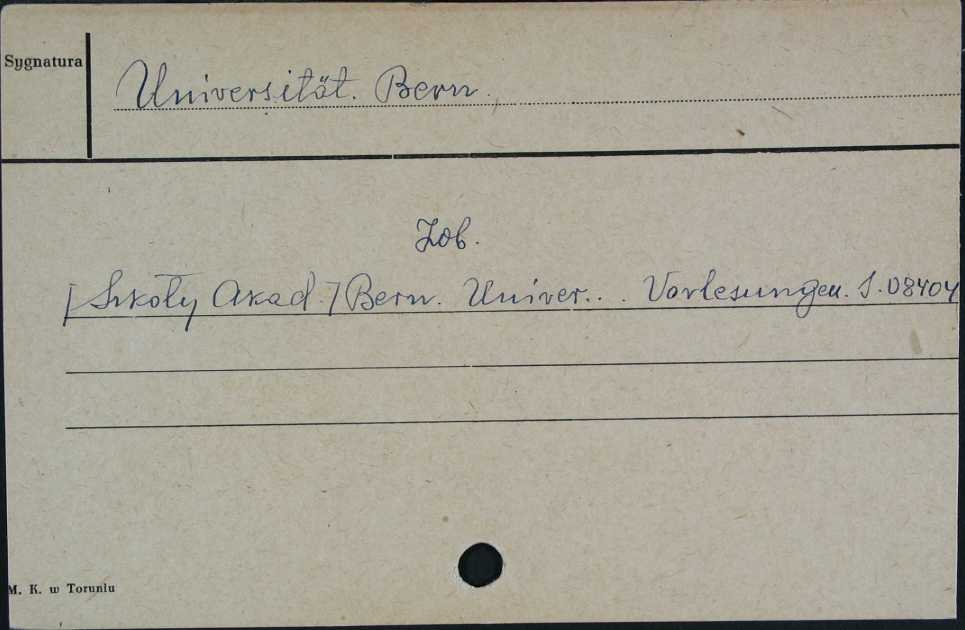 Sygnatura
Universität. Bern.
Zob.
[Szkoły Akad.] Bern. Univer... Vorlesungen. S.08404
M. K. w Toruniu